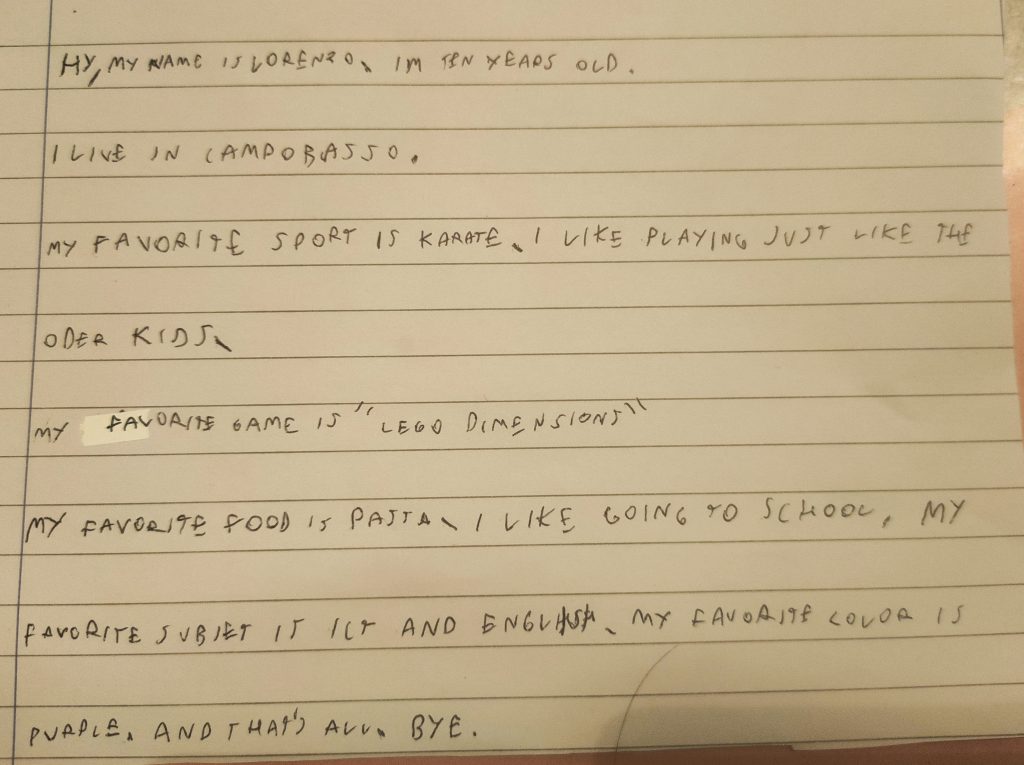 HY, MY NAME IS LORENZO, IM TEN YEARS OLD.
I LIVE IN CAMPOBASSO.
MY FAVORITE SPORT IS KARATE, I LIKE PLAYING JUST LIKE THE
ODER KIDS,
MY FAVORITE GAME IS "LEGO DIMENSIONS"
MY FAVORITE FOOD IS PASTA, I LIKE GOING TO SCHOOL, MY
FAVORITE SUBJET IS ICT AND ENGLISH, MY FAVORITE COLOR IS
PURPLE. AND THAT'S ALL. BYE.